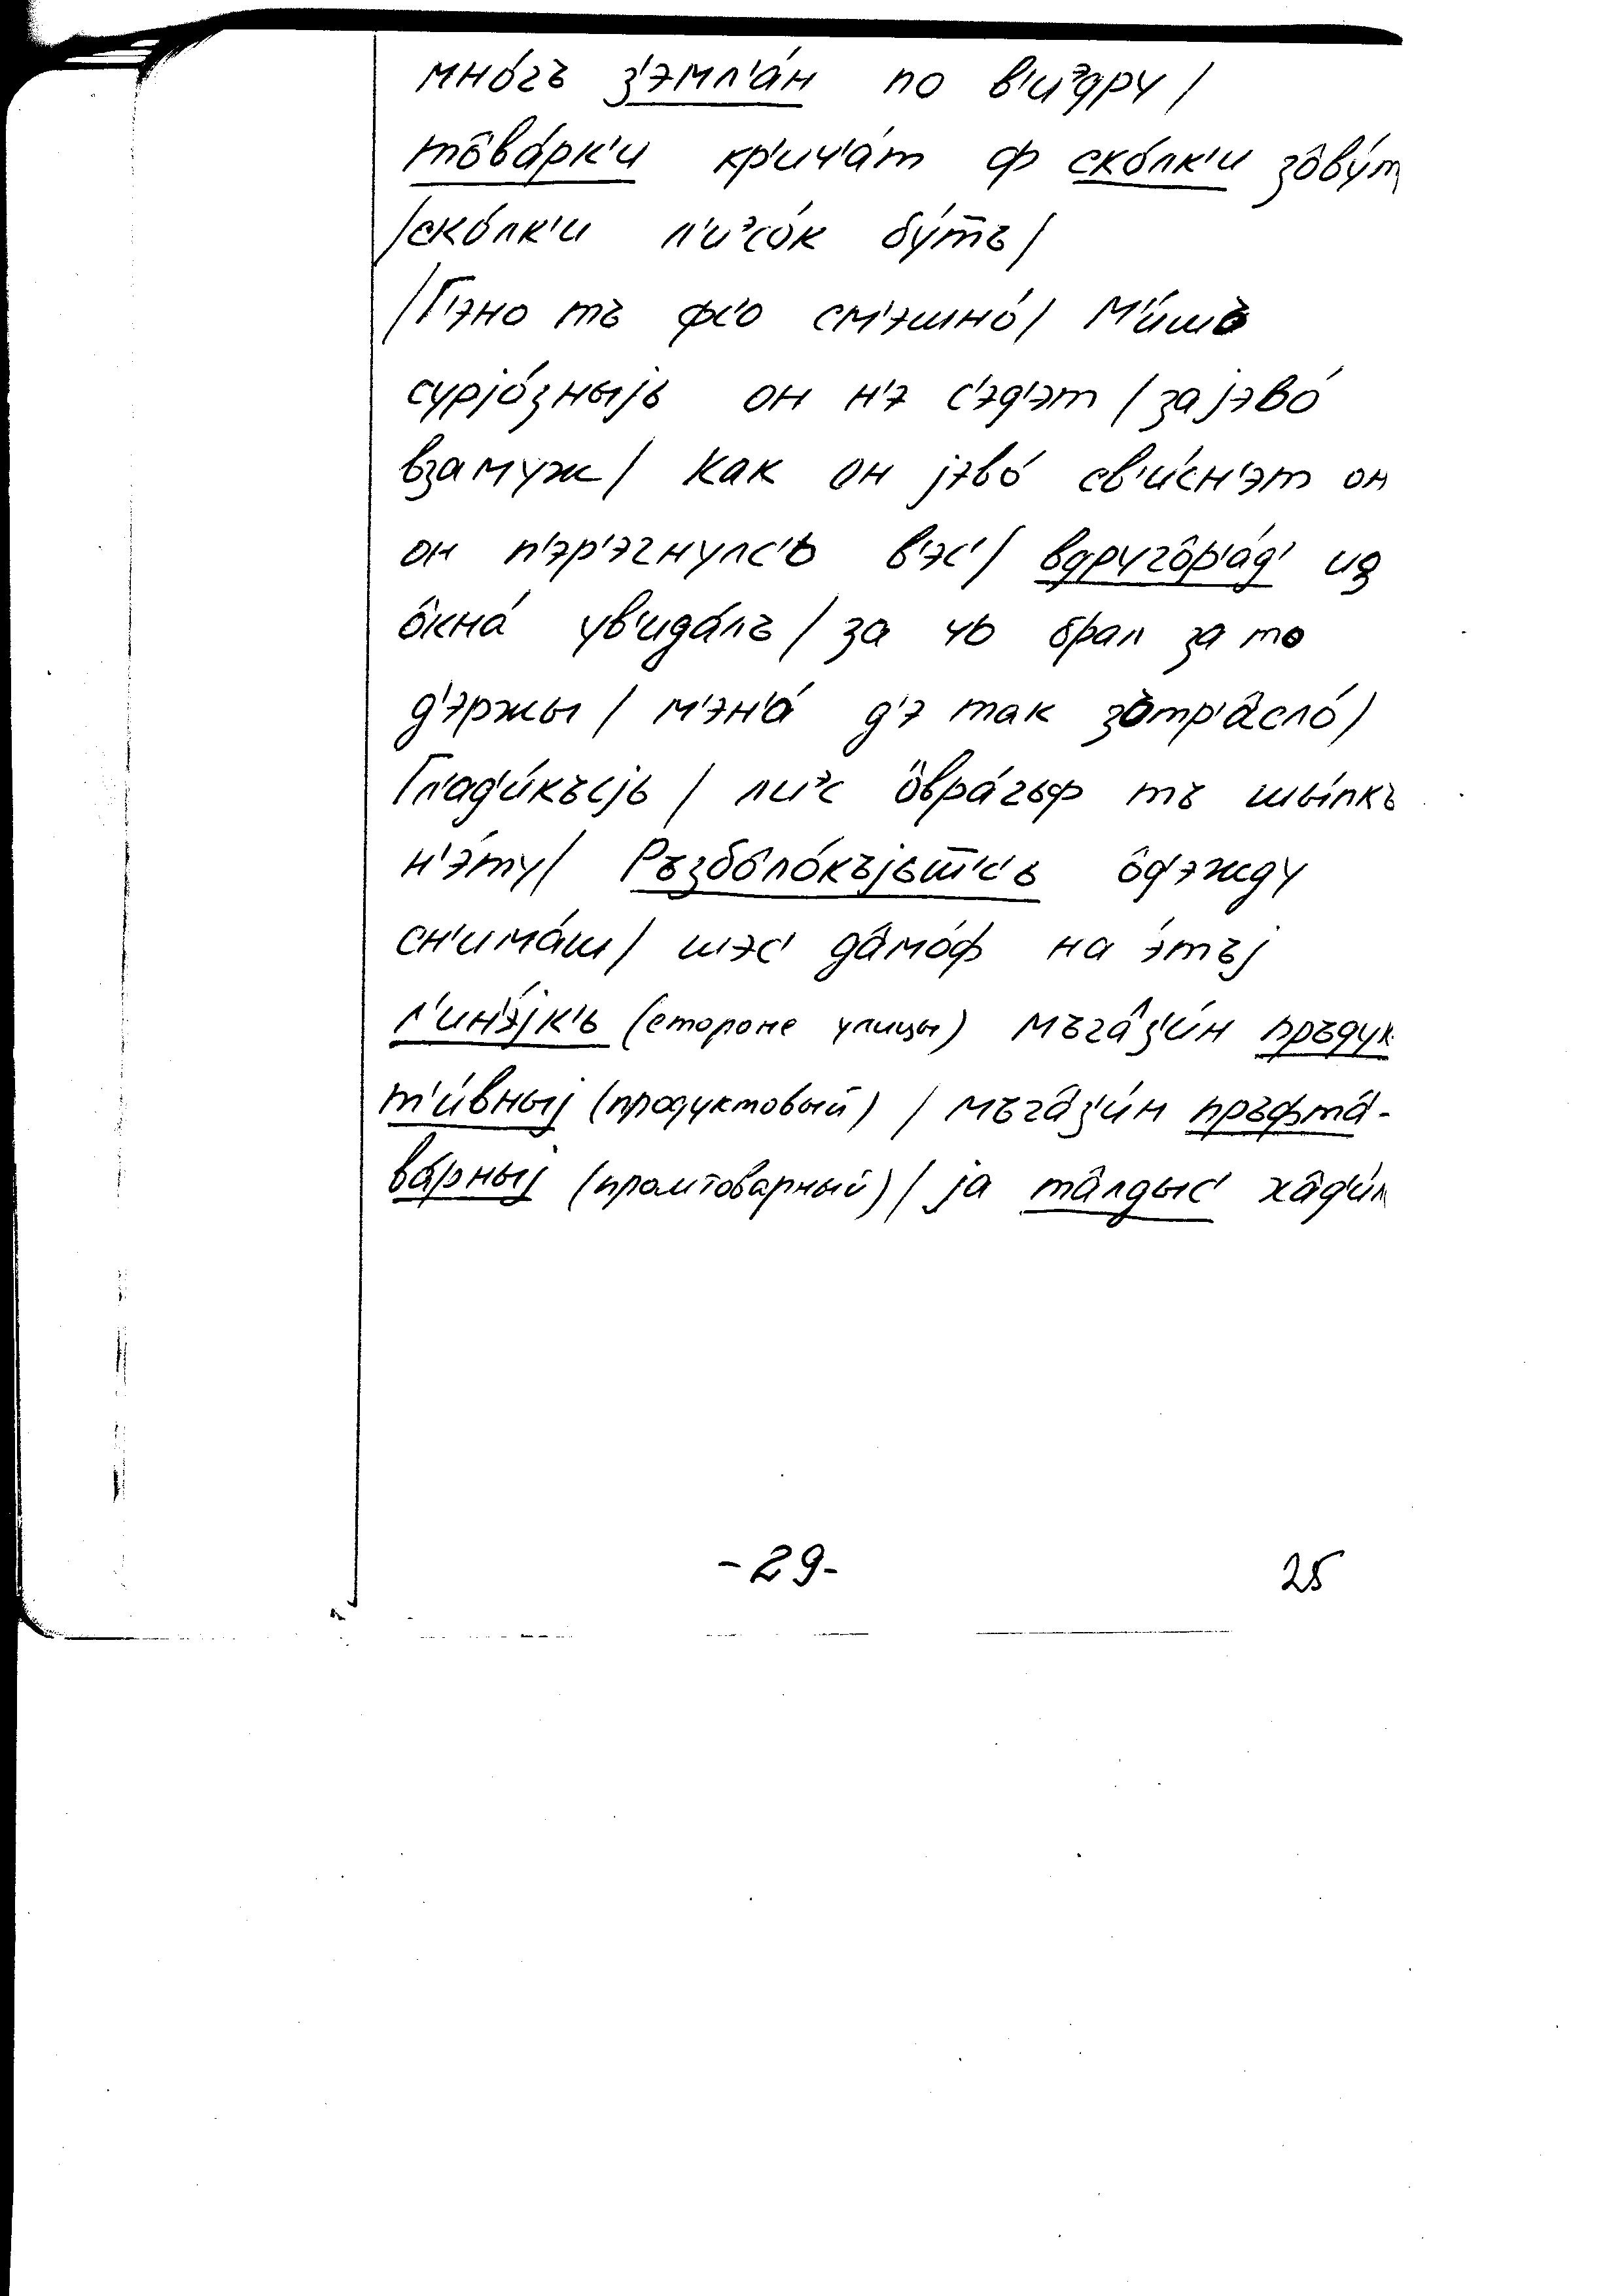 мно́гъ з'эмл'а́н по в'иэдру /
то̂ва́рк'и кр'ич'а́т ф ско́лк'и зо̂ву́т
/ско́лк'и л'иэсо́к бу́т̅ъ/
/Г'эно тъ фс'о см'эшно́/ М'и́шъ
сурjо́зныjь он н'э с'эд'эт / за jэво́
взамуж / Как он jэво́ св'и́сн'эт он
он п'эр'эгнулс'ь в'эс' / вдруго̂р'а́д' из
о̂кна́ ув'ида́лъ / за чо брал за то
д'эржы / м'эн'а́ д'э так зътр'а̂сло́/
Гл'ад'и́късjь / лиэс о̂вра́гъф тъ шы́пкъ
н'э́ту / Ръзбо̂ло́къjьт̅'с'ь о̂д'эжду
сн'има́ш / шэс' да̂мо́ф на э́тъj
л'ин'э́jк'ь (стороне улицы) мъга̂з'и́н пръдук
т'и́вныj (продуктовый) / мъга̂з'и́н пръфта̂-
ва́рныj (промтоварный) / jа та̂лдыс' ха̂д'и́л
-29- 25